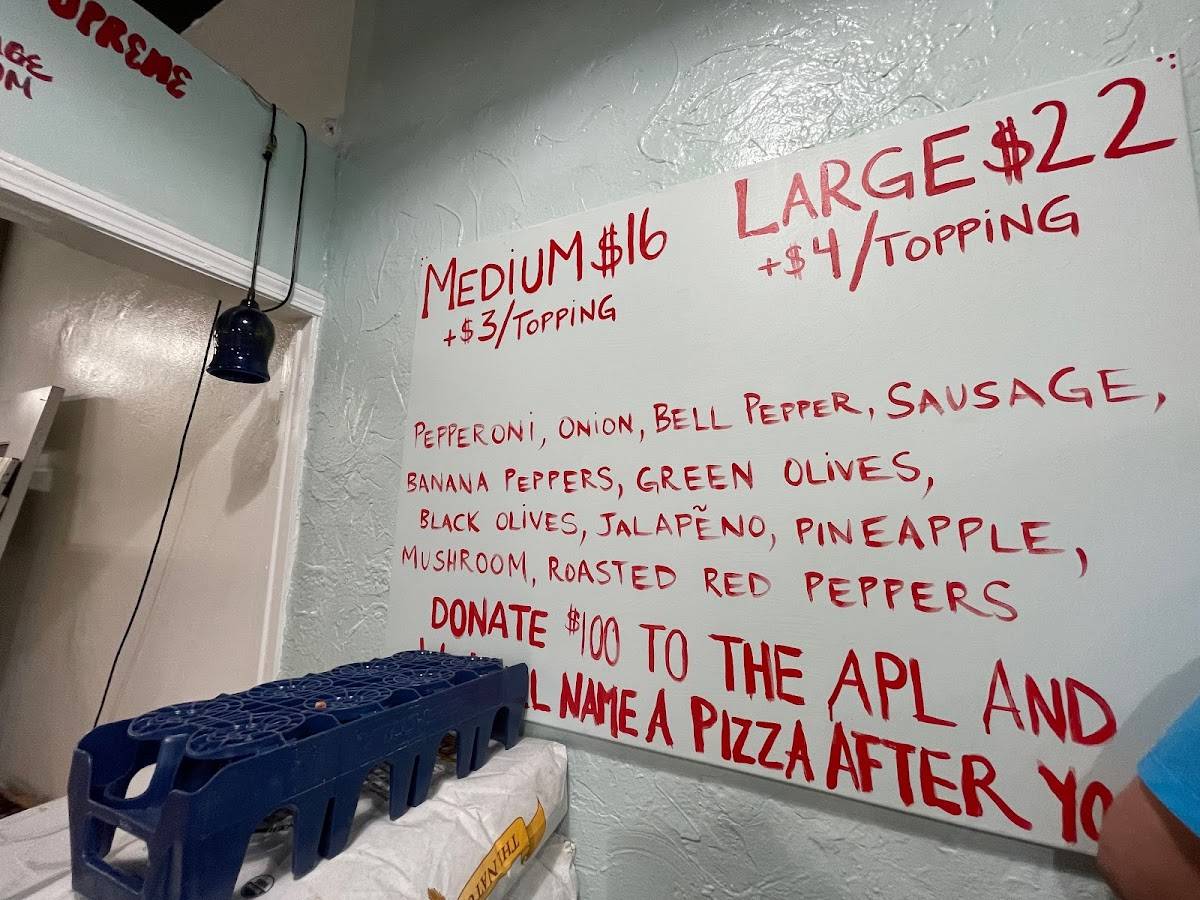 UPREME
AGE
OM
MEDIUM $16
+$3/TOPPING
LARGE $22
+$4/TOPPING
PEPPERONI, ONION, BELL PEPPER, SAUSAGE,
BANANA PEPPERS, GREEN OLIVES,
BLACK OLIVES, JALAPEÑO, PINEAPPLE,
MUSHROOM, ROASTED RED PEPPERS
DONATE $100 TO THE APL AND
NAME A PIZZA AFTER YO